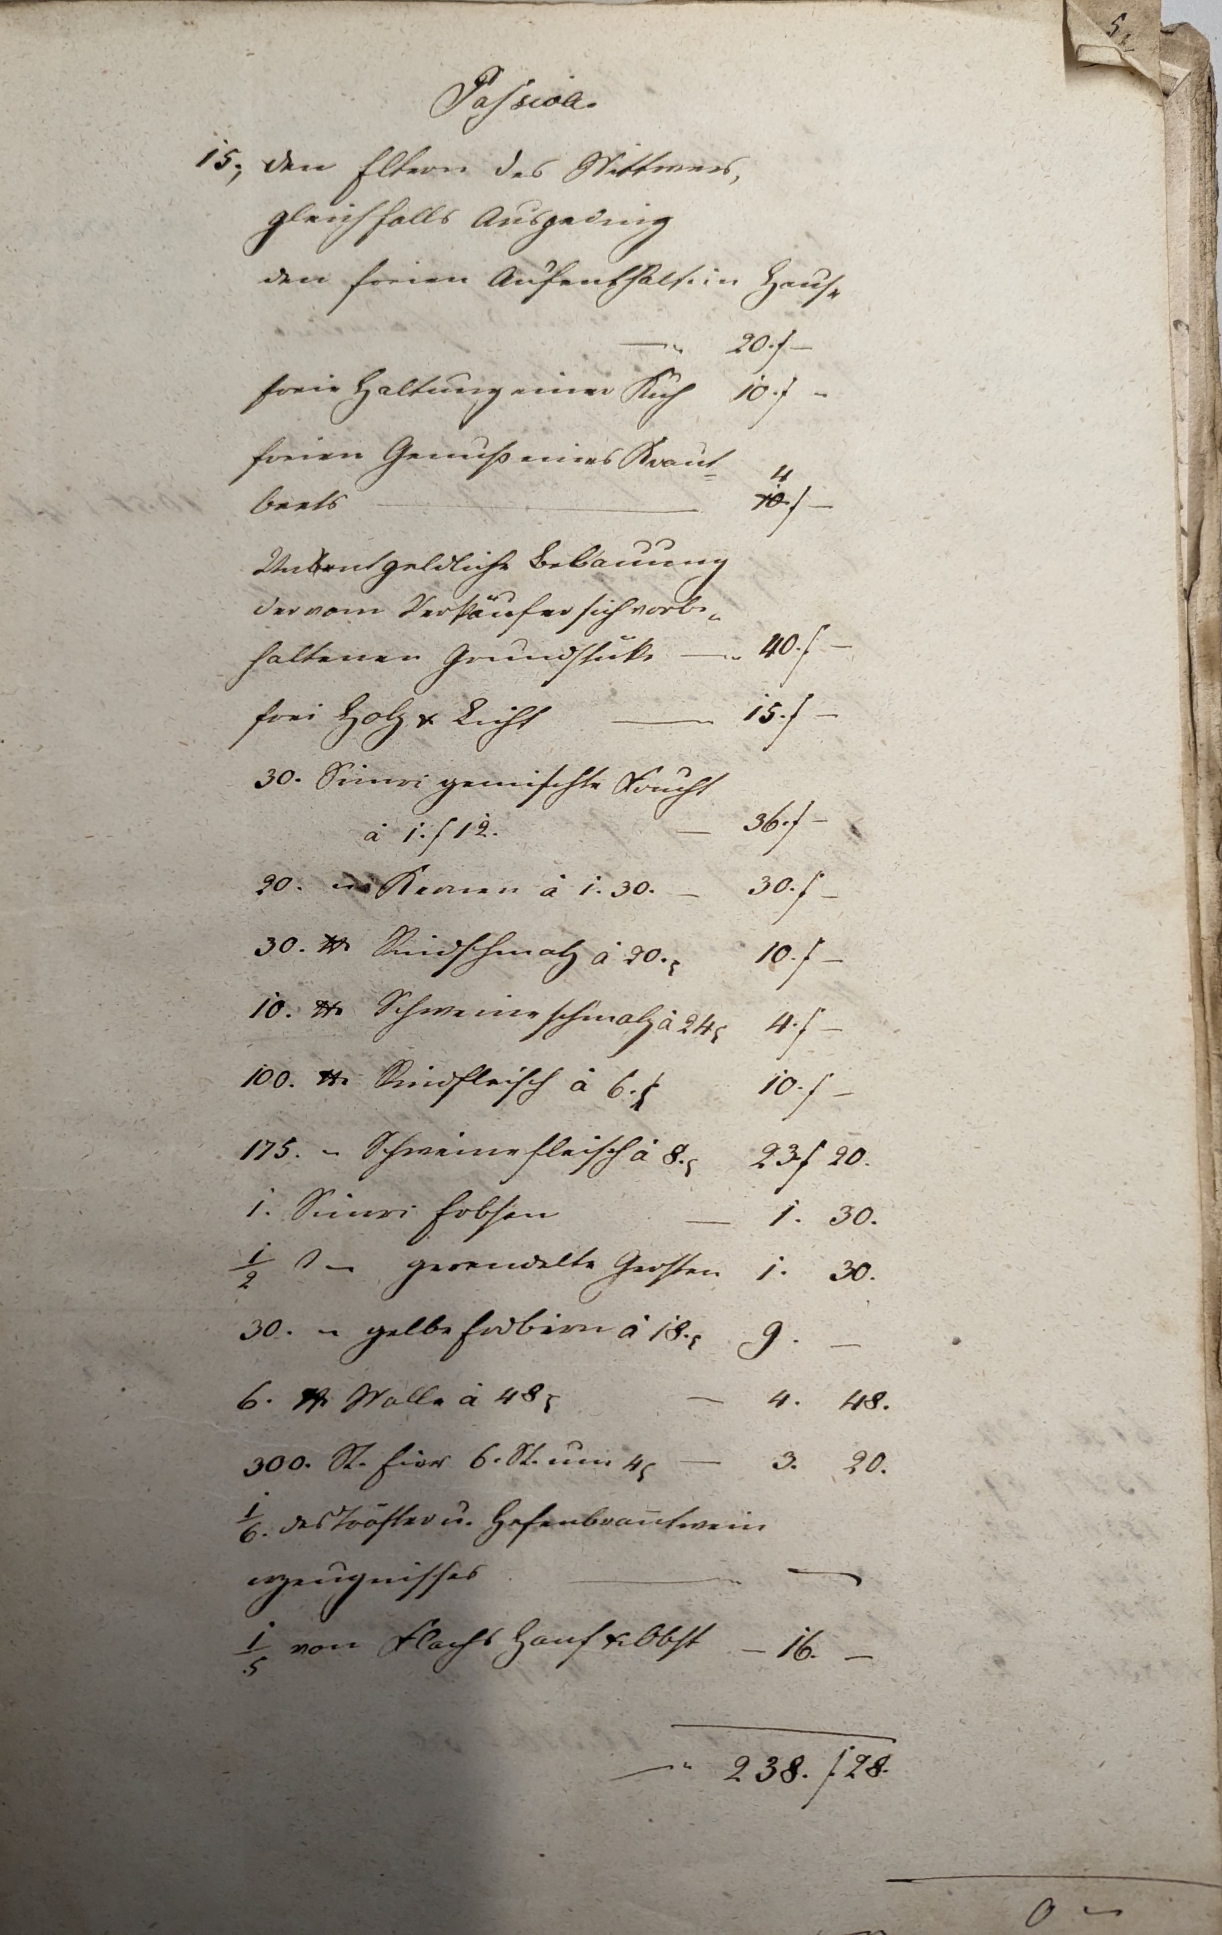 Passiva.
15., den Eltern des Wittwers,
gleichfalls Ausgeding
den freien Aufenthalt im Hause
— " 20. f —
freie Haltung einer Kuh 10. f "
freien Genuß eines Kraut=
beets — 4 10. f —
Unentgeldliche Bebauung
der vom Verkäufer sich vorbe„
haltenen Grundstüke — " 40. f —
frei Holz & Licht — 15. f —
30. Simri gemischte Frucht
à 1. f 12. — 36. f —
20. " Kernen à 1. 30. — 30. f —
30. ℔ Rindschmalz à 20. 10. f —
10. ℔ Schweineschmalz à 24 4. f —
100. ℔ Rindfleisch à 6. 10. f —
175. " Schweinefleisch à 8. 23 f 20.
1. Simri Erbsen — 1. 30.
1/2 " gerendelte Gersten 1. 30.
30. " gelbe Erdbirn à 18. 9. —
6. ℔ Wolle à 48 — 4. 48.
300. St. Eier 6. St. um 4 — 3. 20.
1/6. des Tröster u. Hefenbrantwein
erzeugnisses — —
1/5 von Flachs Hanf & Obst — 16. —
— " 238. f 28.
0 —